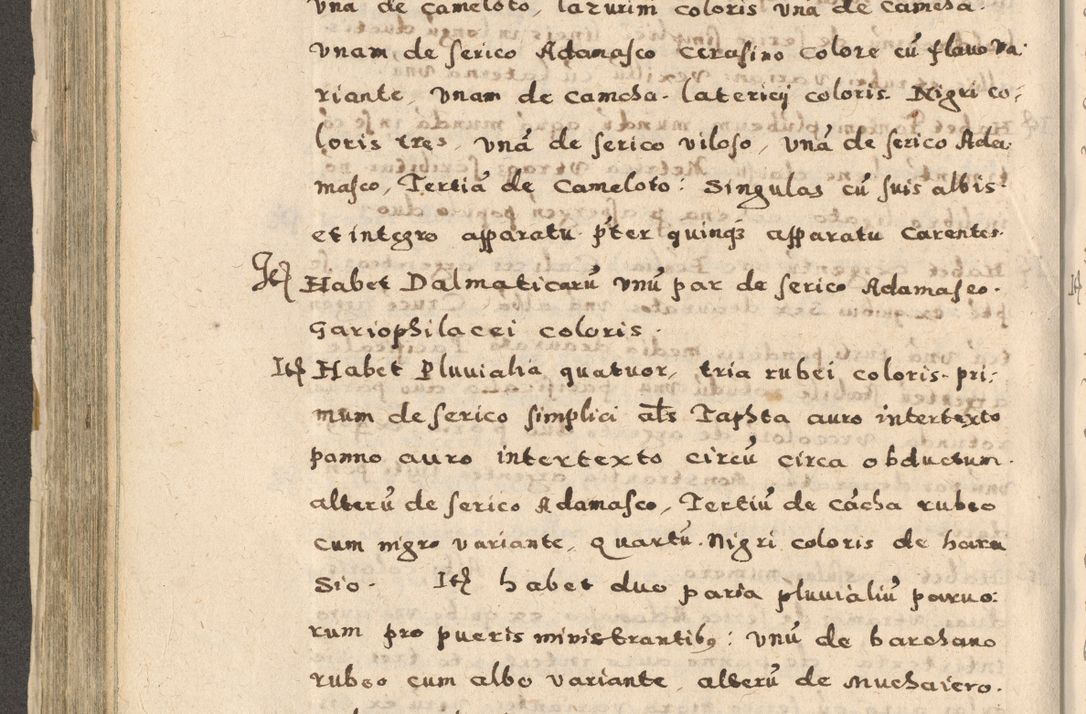 vna de cameloto, lazurini coloris vna de camcha.
vnam de serico Adamasco cerasino colore cū flauo va:
riante, vnam de camcha. latericij coloris. Nigri co:
loris tres, vnā de serico viloso, vnā de serico Ada:
masco, Tertiā de Cameloto: Singulas cū suis albis
et integro apparatu p̄ter quinqȝ apparatu carentes.
Itē Habet Dalmaticarū vnū par de serico Adamasco.
Gariophilacei coloris.
Itē Habet Pluuialia quatuor, tria rubei coloris. pri:
mum de serico simplici al̄s Taphta auro intertexto
panno auro intertexto circū circa obductum.
alterū de serico Adamasco, Tertiū de cācha rubeo
cum nigro variante, quartū. Nigri coloris de hara
sio. Itē habet duo paria pluuialiū paruo:
rum pro pueris ministrantibꝰ: vnū de barchano
rubeo cum albo variante, alterū de Muchaiero.